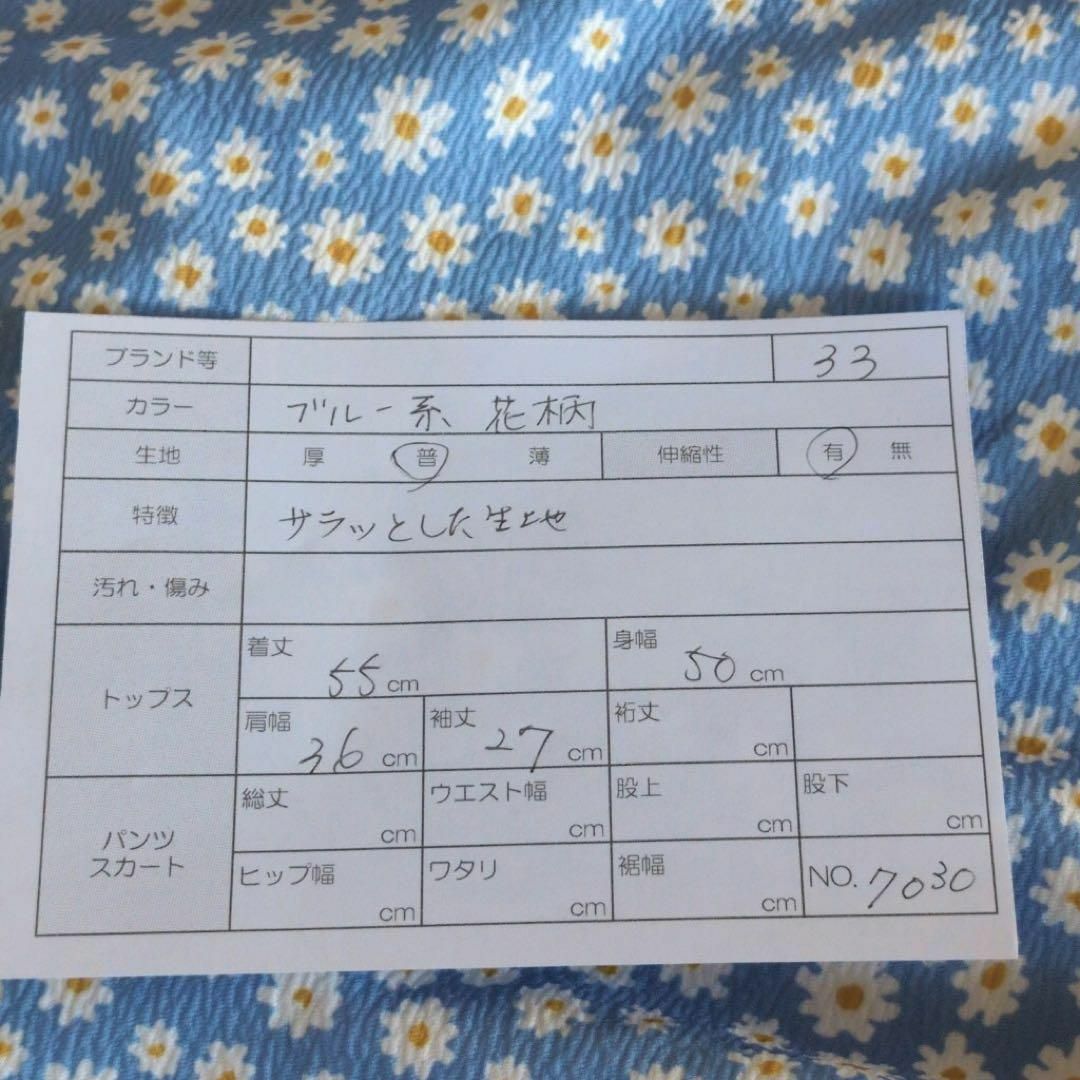 ブランド等 33
カラー ブルー系 花柄
生地 厚 普 薄 伸縮性 有 無
特徴 サラッとした生地
汚れ・傷み
トップス
着丈 55cm 身幅 50cm
肩幅 36cm 袖丈 27cm 裄丈 cm
パンツ
スカート
総丈 cm ウエスト幅 cm 股上 cm 股下 cm
ヒップ幅 cm ワタリ cm 裾幅 cm NO.7030